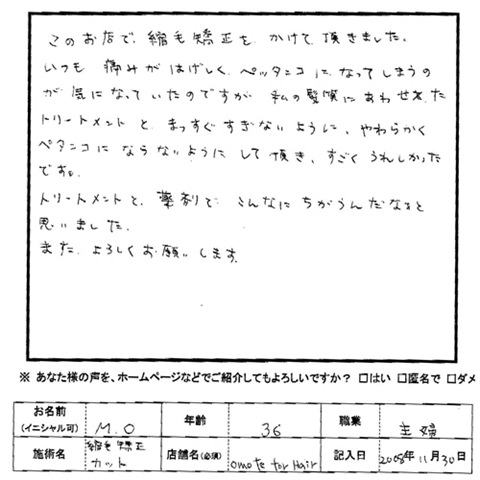 このお店で、縮毛矯正を かけて 頂きました。
いつも 痛みが はげしく ペッタンコに なってしまうの
が 気に なって いたのですが 私の 髪質に あわせた
トリートメントと まっすぐすぎないように、やわらかく
ペタンコに ならないように して 頂き、すごく うれしかった
です。
トリートメントと、薬剤で こんなに ちがうんだなぁと
思いました。
また よろしくお願いします。
※ あなた様の声を、ホームページなどでご紹介してもよろしいですか? □はい □匿名で □ダメ
お名前 (イニシャル可) M.O 年齢 36 職業 主婦
施術名 縮毛矯正 カット 店舗名(必須) omote for Hair 記入日 2008年 11月 30日